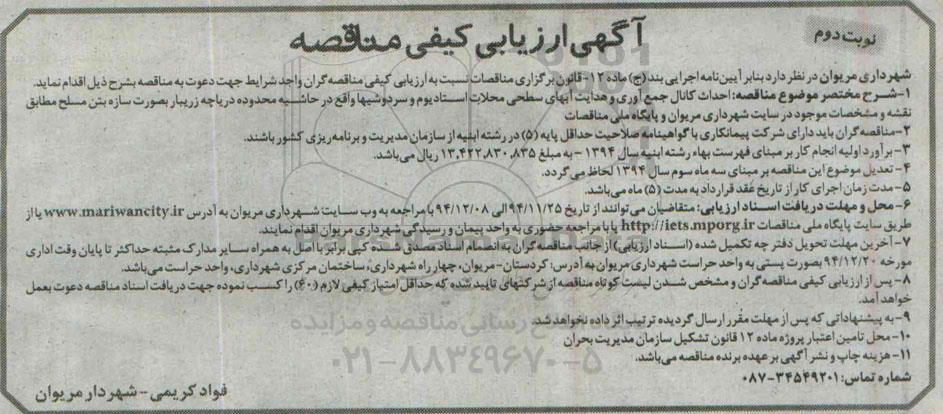 نوبت دوم
آگهی ارزیابی کیفی مناقصه
شهرداری مریوان در نظر دارد بنابر آیین نامه اجرایی بند (ج) ماده ۱۲- قانون برگزاری مناقصات نسبت به ارزیابی کیفی مناقصه گران واجد شرایط جهت دعوت به مناقصه بشرح ذیل اقدام نماید.
۱-شرح مختصر موضوع مناقصه: احداث کانال جمع آوری و هدایت آبهای سطحی محلات استادیوم و سردوشیها واقع در حاشیه محدوده دریاچه زریبار بصورت سازه بتن مسلح مطابق
نقشه و مشخصات موجود در سایت شهرداری مریوان و پایگاه ملی مناقصات
۲-مناقصه گران باید دارای شرکت پیمانکاری با گواهینامه صلاحیت حداقل پایه (۵) در رشته ابنیه از سازمان مدیریت و برنامه ریزی کشور باشند.
۳- برآورد اولیه انجام کار بر مبنای فهرست بهاء رشته ابنیه سال ۱۳۹۴ - به مبلغ ۱۳,۴۲۲,۸۳۰,۸۳۵ ریال می باشد.
۴- تعدیل موضوع این مناقصه بر مبنای سه ماه سوم سال ۱۳۹۴ لحاظ می گردد.
۵- مدت زمان اجرای کار از تاریخ عقد قرارداد به مدت (۵) ماه می باشد.
۶- محل و مهلت دریافت اسناد ارزیابی: متقاضیان می توانند از تاریخ ۹۴/۱۱/۲۵ الی ۹۴/۱۲/۰۸ با مراجعه به وب سایت شهرداری مریوان به آدرس www.mariwancity.ir یا از
طریق سایت پایگاه ملی مناقصات http://iets.mporg.ir یا با مراجعه حضوری به واحد پیمان و رسیدگی شهرداری مریوان اقدام نمایند.
۷- آخرین مهلت تحویل دفتر چه تکمیل شده (اسناد ارزیابی) از جانب مناقصه گران به انضمام اسناد مصدق شده کپی برابر با اصل به همراه سایر مدارک مثبته حداکثر تا پایان وقت اداری
مورخه ۹۴/۱۲/۲۰ بصورت پستی به واحد حراست شهرداری مریوان به آدرس: کردستان-مریوان، چهار راه شهرداری، ساختمان مرکزی شهرداری، واحد حراست می باشد.
۸- پس از ارزیابی کیفی مناقصه گران و مشخص شدن لیست کوتاه مناقصه از شرکتهای تایید شده که حداقل امتیاز کیفی لازم (۶۰) را کسب نموده جهت دریافت اسناد مناقصه دعوت بعمل
خواهد آمد.
۹- به پیشنهاداتی که پس از مهلت مقرر ارسال گردیده ترتیب اثر داده نخواهد شد.
۱۰- محل تامین اعتبار پروژه ماده ۱۲ قانون تشکیل سازمان مدیریت بحران
۱۱- هزینه چاپ و نشر آگهی بر عهده برنده مناقصه می باشد.
شماره تماس: ۳۴۵۴۹۲۰۱-۰۸۷
فواد کریمی - شهردار مریوان
رسانی مناقصه و مزایده
۰۲۱-۸۸۳۴۹۶۷۰-۵